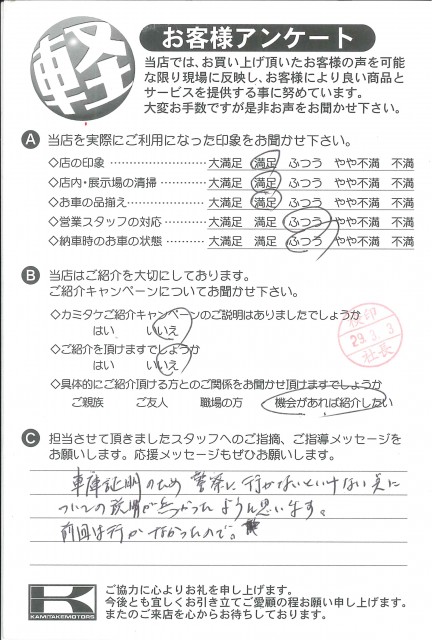 軽
お客様アンケート
当店では、お買い上げ頂いたお客様の声を可能
な限り現場に反映し、お客様により良い商品と
サービスを提供する事に努めています。
大変お手数ですが是非お声をお聞かせ下さい。
A 当店を実際にご利用になった印象をお聞かせ下さい。
◇店の印象 ⋯⋯⋯⋯⋯⋯⋯ 大満足 満足 ふつう やや不満 不満
◇店内・展示場の清掃 ⋯⋯⋯⋯ 大満足 満足 ふつう やや不満 不満
◇お車の品揃え⋯⋯⋯⋯⋯⋯ 大満足 満足 ふつう やや不満 不満
◇営業スタッフの対応 ⋯⋯⋯⋯ 大満足 満足 ふつう やや不満 不満
◇納車時のお車の状態 ⋯⋯⋯⋯ 大満足 満足 ふつう やや不満 不満
B 当店はご紹介を大切にしております。
ご紹介キャンペーンについてお聞かせ下さい。
◇カミタケご紹介キャンペーンのご説明はありましたでしょうか
はい いいえ
◇ご紹介を頂けますでしょうか
はい いいえ
◇具体的にご紹介頂ける方とのご関係をお聞かせ頂けますでしょうか
ご親族 ご友人 職場の方 機会があれば紹介したい
検印
29.3.3
社長
C 担当させて頂きましたスタッフへのご指摘、ご指導メッセージを
お願いします。応援メッセージもぜひお願いします。
車庫証明のため 警察に行かないといけない点に
ついての説明が無かったように思います。
前回は行かなかったので。
K
KAMITAKEMOTORS
ご協力に心よりお礼を申し上げます。
今後とも宜しくお引き立てご愛顧の程お願い申し上げます。
またのご来店を心からお待ちしております。